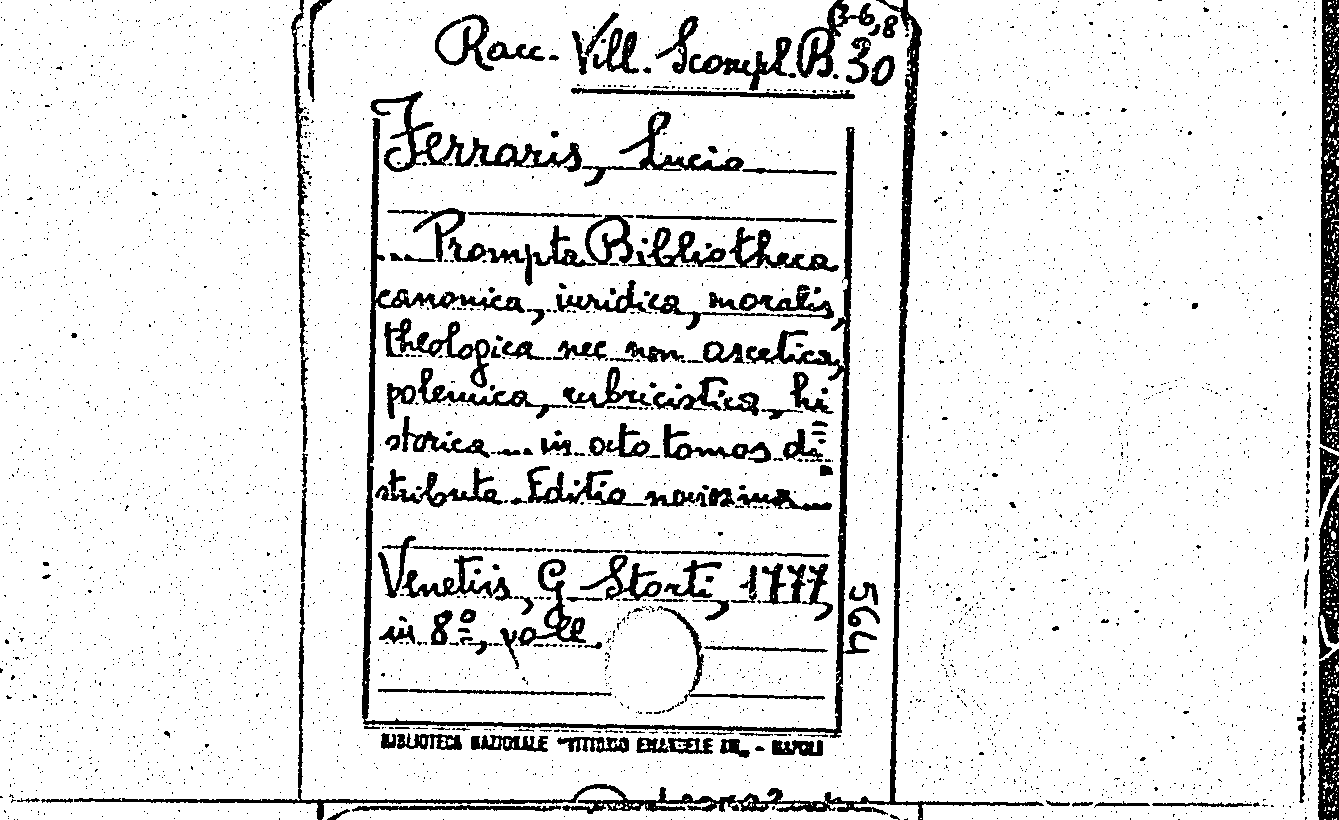 (3-6,8
Racc. Vill. Scompl. B. 30
Ferraris, Lucio
... Prompta Bibliotheca
canonica, iuridica, moralis,
theologica nec non ascetica,
polemica, rubricistica, hi
storica ... in octo tomos di=
stributa. Editio novissima ...
Venetiis, G. Storti, 1777,
in 8º, voll.
564
BIBLIOTECA NAZIONALE "VITTORIO EMANUELE III" - NAPOLI